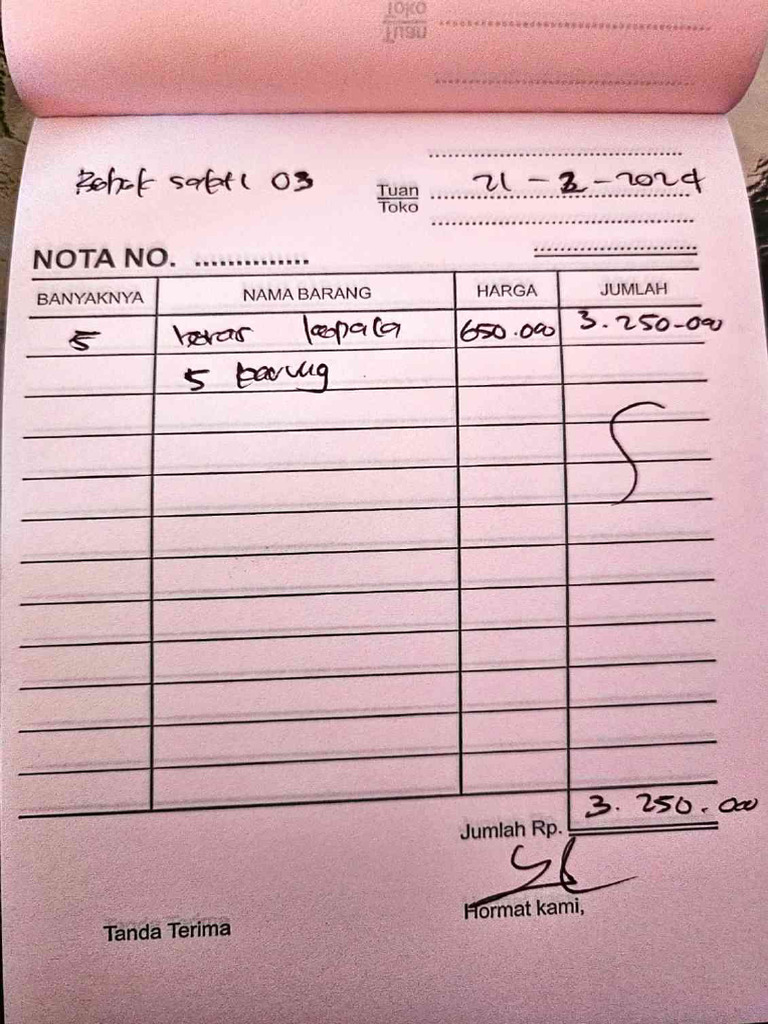 Toko
Tuan
03
Tuan
Toko
21 - 2 - 2024
NOTA NO. ..............
BANYAKNYA NAMA BARANG HARGA JUMLAH
5 beras kepala 650.000 3.250-000
5 karung
3. 250. 000
Jumlah Rp.
Hormat kami,
Tanda Terima